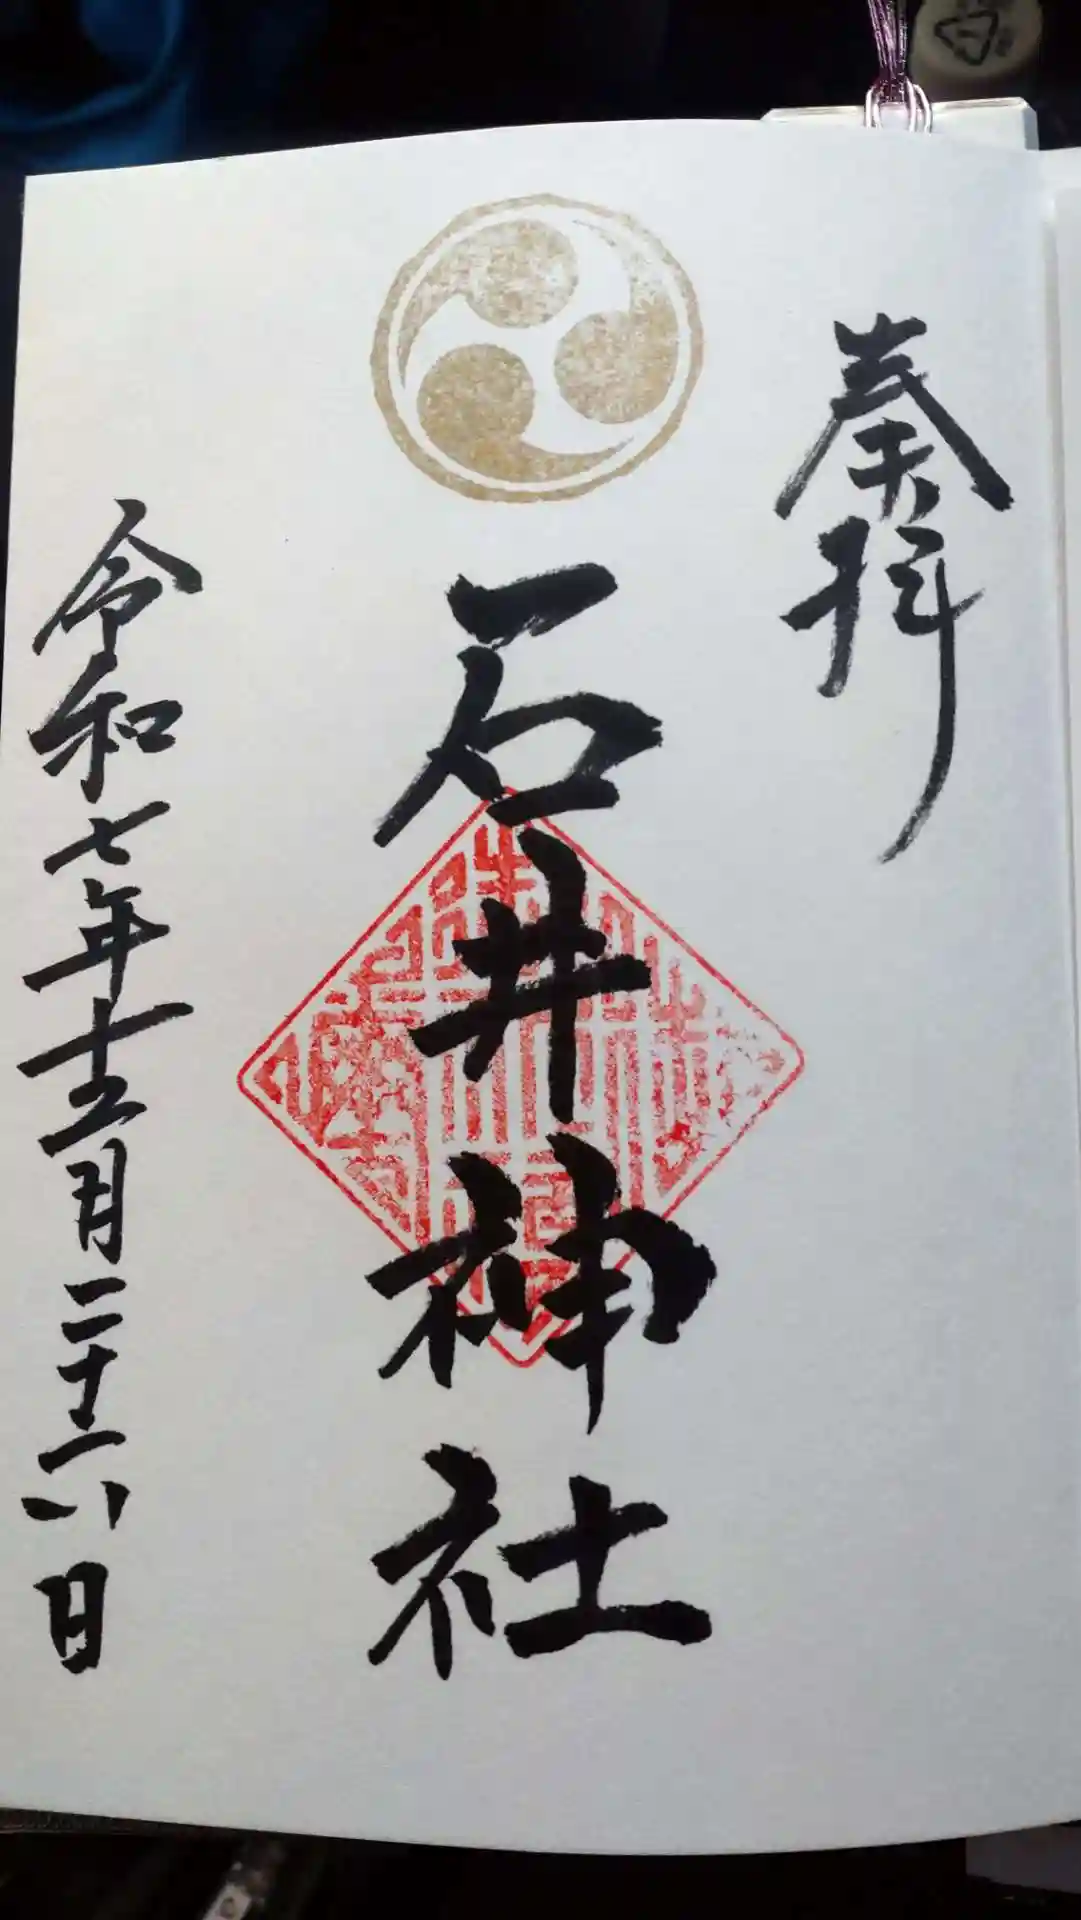 奉拝
石井神社
令和七年十二月二十六日